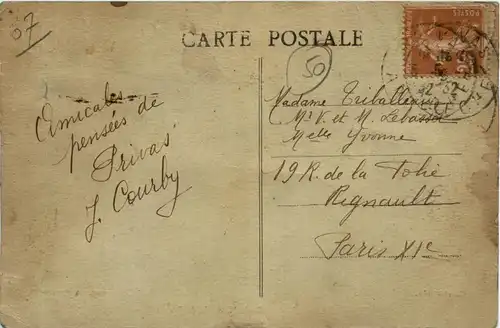 07
CARTE POSTALE
50
Amicales
pensées de
Privas
J. Courby
Madame
Mr V. et M.
Melle Yvonne
19 R. de la Folie
Regnault
Paris XIe